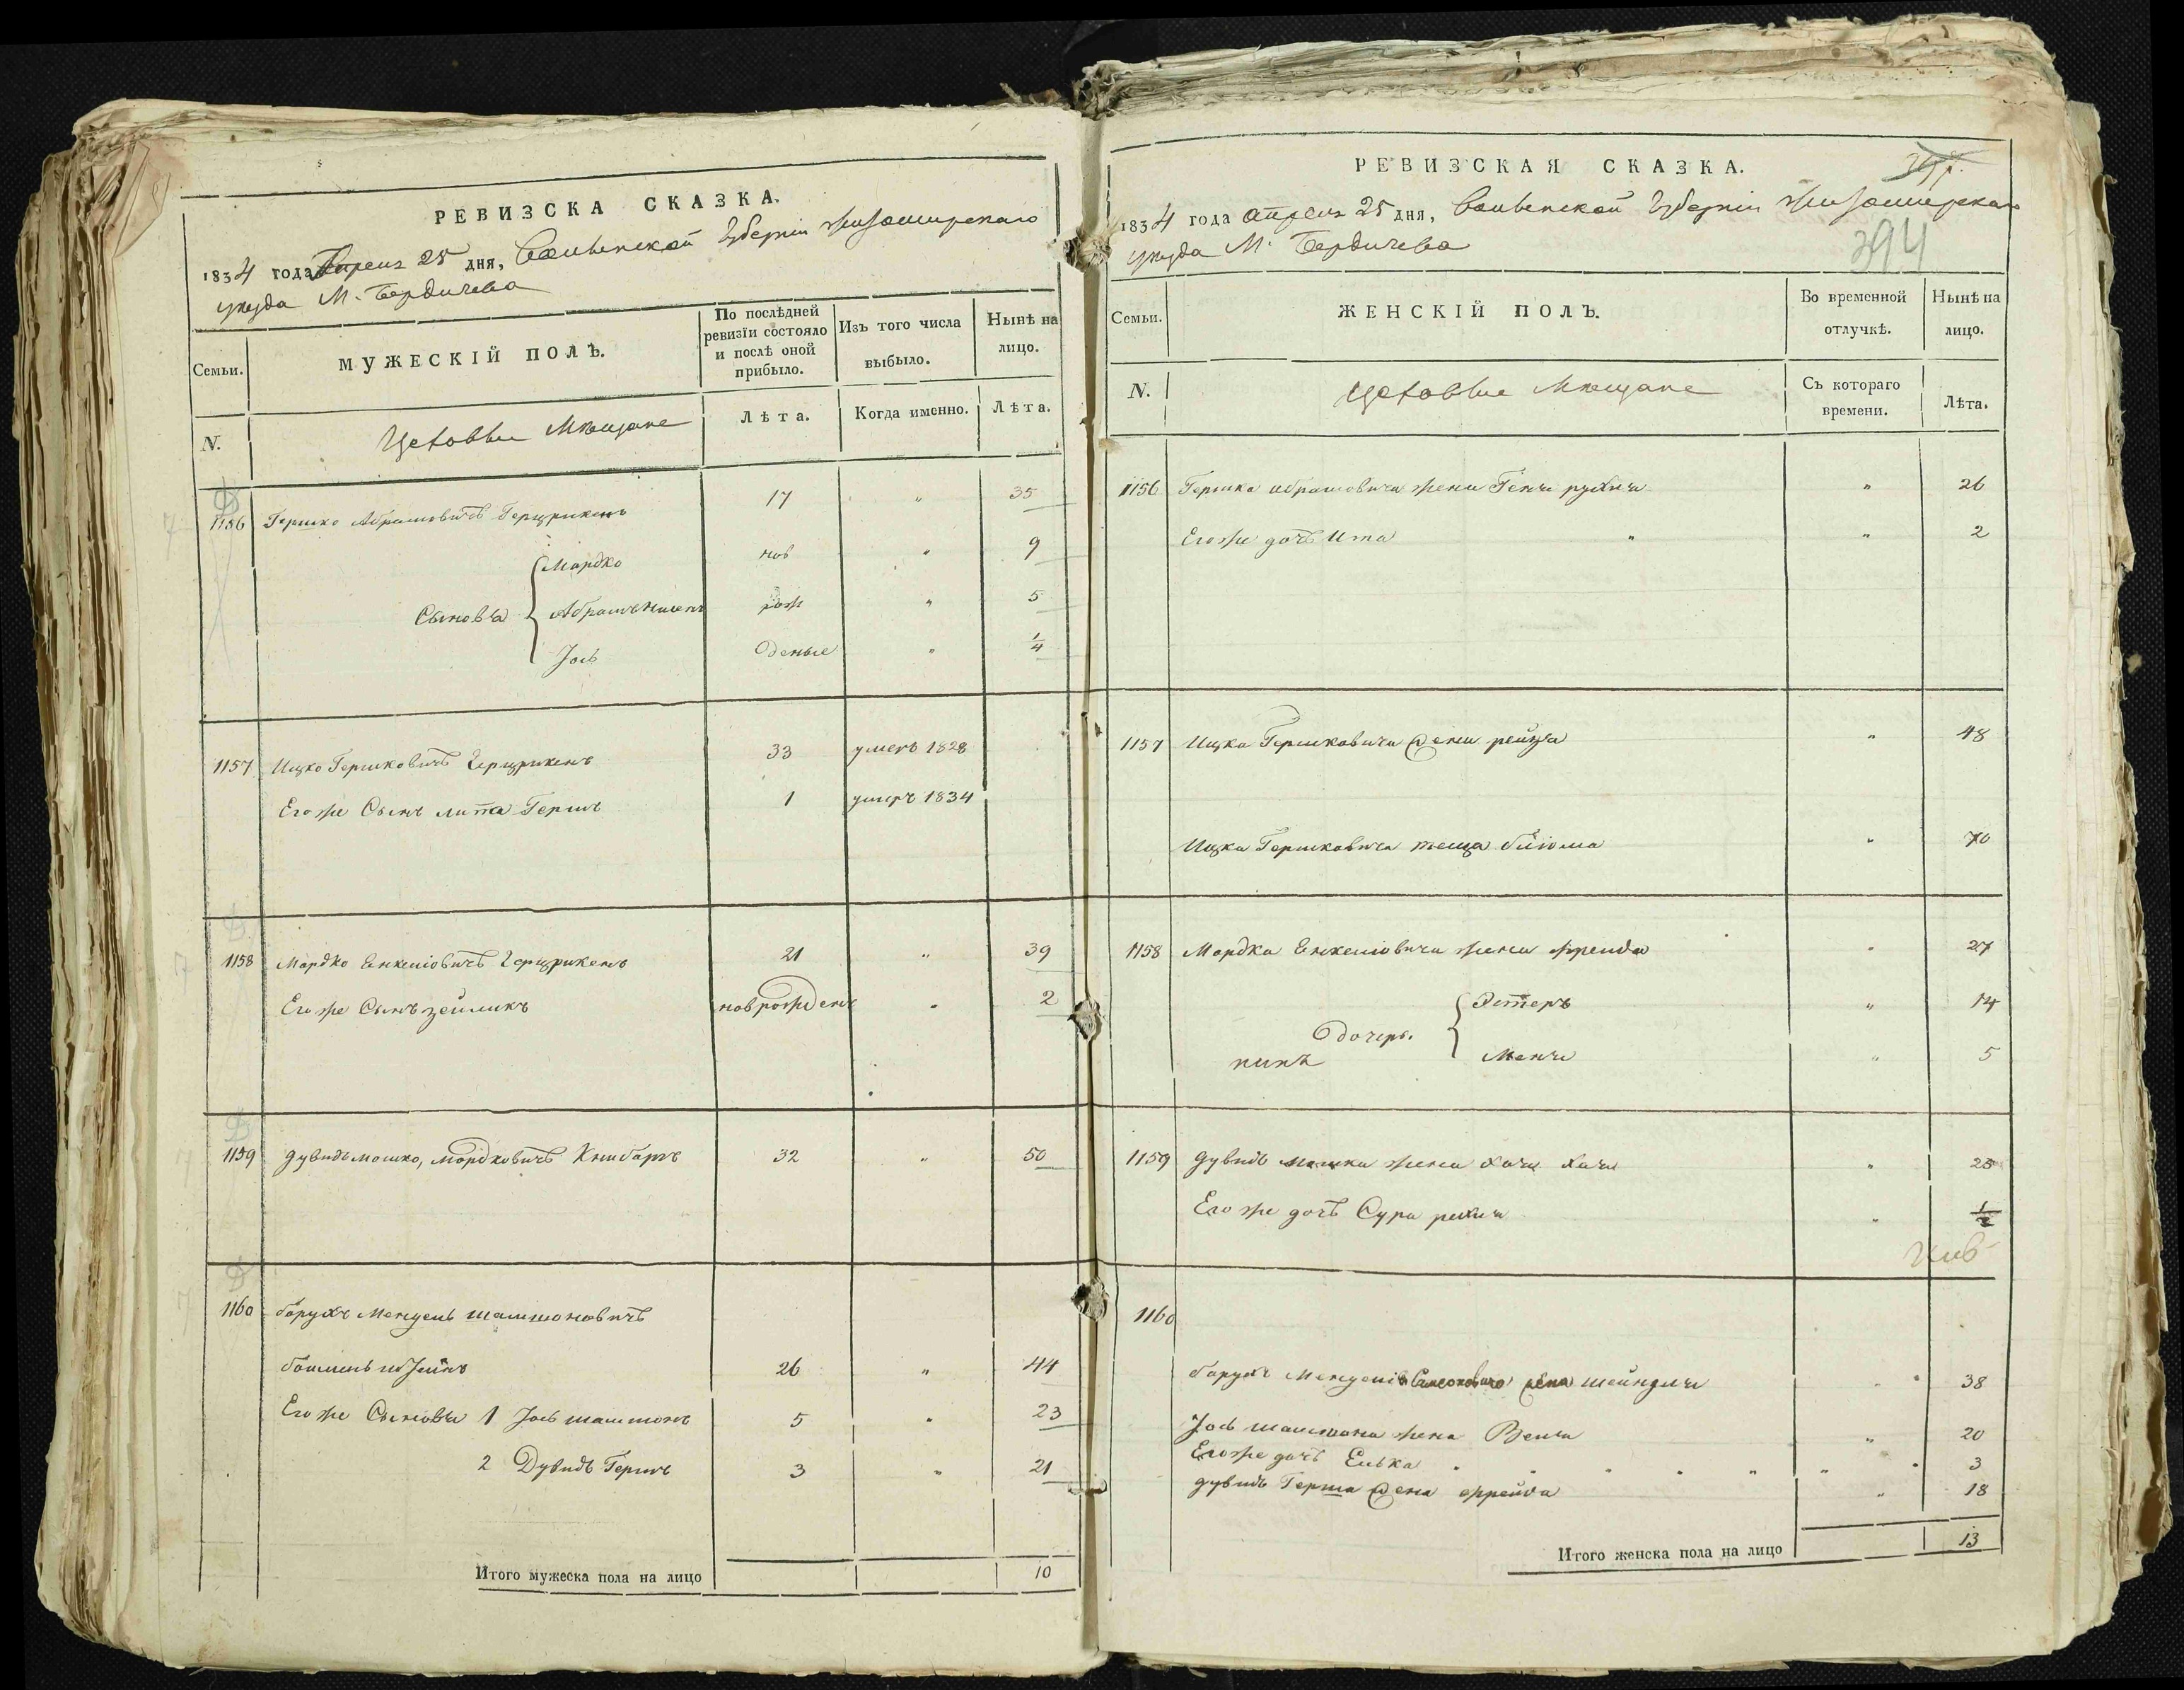 РЕВИЗСКА СКАЗКА.
1834 года Апреля 25 дня, Волынской Губернии Житомирскаго
уезда М. Бердичева
Семьи.
МУЖЕСКІЙ ПОЛЪ.
По послѣдней ревизіи состояло и послѣ оной прибыло.
Изъ того числа выбыло.
Нынѣ на лицо.
N.
Цеховые Мещане
Лѣта.
Когда именно.
Лѣта.
1156 Гершко Абрамовичъ Герцрикенъ 17 " 35
Мордко нов " 9
Сыновья Абрамъ рож " 5
Іось деные " 1/4
1157 Ицко Гершковичъ Герцрикенъ 33 умеръ 1828
Его же Сынъ Липа Гершъ 1 умеръ 1834
1158 Мордко Енкелiовичъ Герцрикенъ 21 " 39
Его же Сынъ Зейликъ новрожденъ " 2
1159 Дувидъ Мошко, Мордковичъ 32 " 50
1160 Борухъ Мендель Шамшоновичъ
26 " 44
Его же Сыновья 1 Іось Шамшонъ 5 " 23
2 Дувидъ Гершъ 3 " 21
Итого мужеска пола на лицо 10
РЕВИЗСКАЯ СКАЗКА.
394
1834 года Апреля 25 дня, Волынской Губернии Житомирскаго
уезда М. Бердичева
Семьи.
ЖЕНСКІЙ ПОЛЪ.
Во временной отлучкѣ.
Нынѣ на лицо.
N.
Цеховые Мещане
Съ котораго времени.
Лѣта.
1156 Гершка Абрамовича жена Геня Рухля " 26
Его же дочъ Ита " " 2
1157 Ицка Гершковича жена Рейза " 48
Ицка Гершковича теща Блюма " 70
1158 Мордка Енкелiовича жена Фрейда " 27
Эстеръ " 14
дочери.
Меня " 5
1159 Дувидъ Мошка жена Хая " 25
Его же дочъ Сура Рехля " 1/2
1160
Борухъ Менделя жена Шейндля " 38
Іось Шамшона жена Бейла " 20
Его же дочъ Елька " " " " " " " 3
Дувидъ Герша жена Фрейда " 18
Итого женска пола на лицо 13